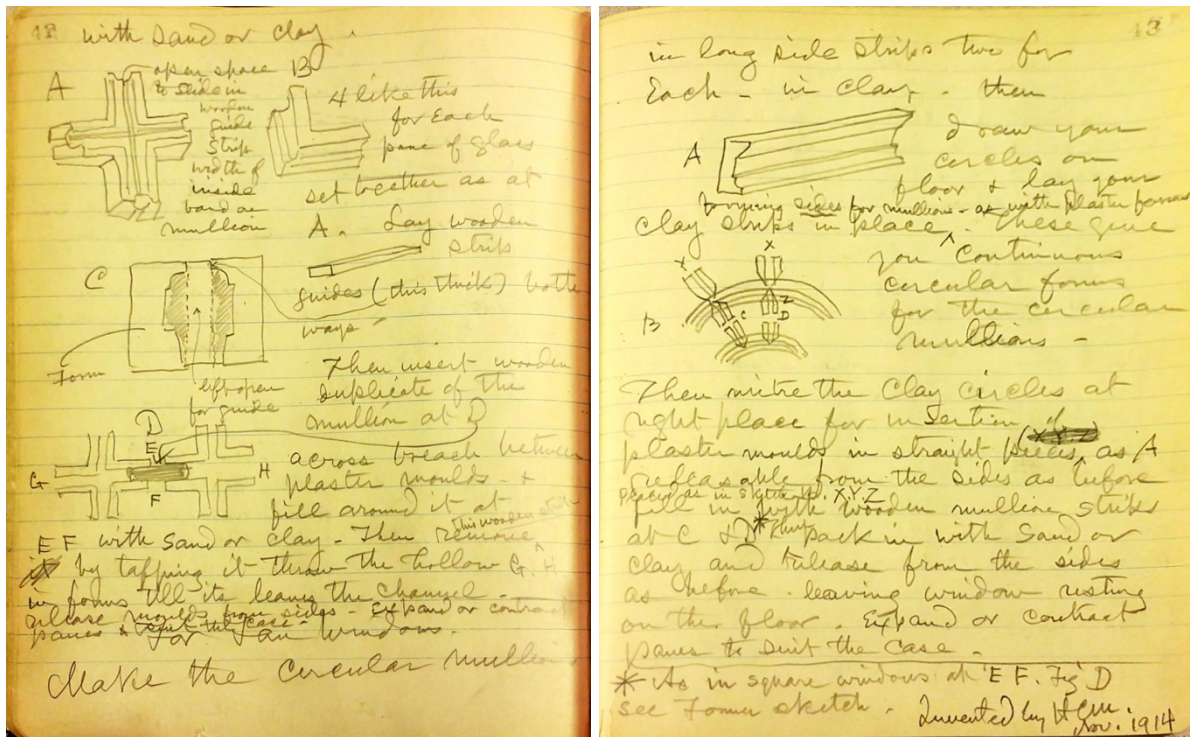 42
with sand or clay.
A
open space
to slide in
wooden
guide
strip
width of
inside
band on
mullion
B
4 like this
for Each
pane of glass
set together as at
A. Lay wooden
strip
guides (this thick) both
ways
C
Form
left open
for guide
Then insert wooden
duplicate of the
mullion at D
D
E
G
H
F
across breach between
plaster moulds - &
fill around it at
E F with sand or clay - Then remove
this wooden strip
by tapping it through the hollow G. H
in forms till its leaves the channel -
release moulds from sides - Expand or contract
panes to suit the case -
for fan windows.
Make the circular mullions
43
in long side strips two for
Each - in clay - then
A
draw your
circles on
floor & lay your
forming sides for mullions - as with plaster forms
clay strips in place. These give
you continuous
circular forms
for the circular
mullions -
B
X
X
Z
C
D
Then mitre the clay circles at
right place for insertion of
plaster moulds in straight pieces, as A
releasable from the sides as before
placed as in sketch X.Y.Z
fill in with wooden mullion strips
at C & D * Then pack in with sand or
clay and release from the sides
as before - leaving window resting
on the floor. Expand or contract
panes to suit the case -
* As in square windows at E F. Fig D
see Former sketch.
Invented by HCM.
Nov. 1914